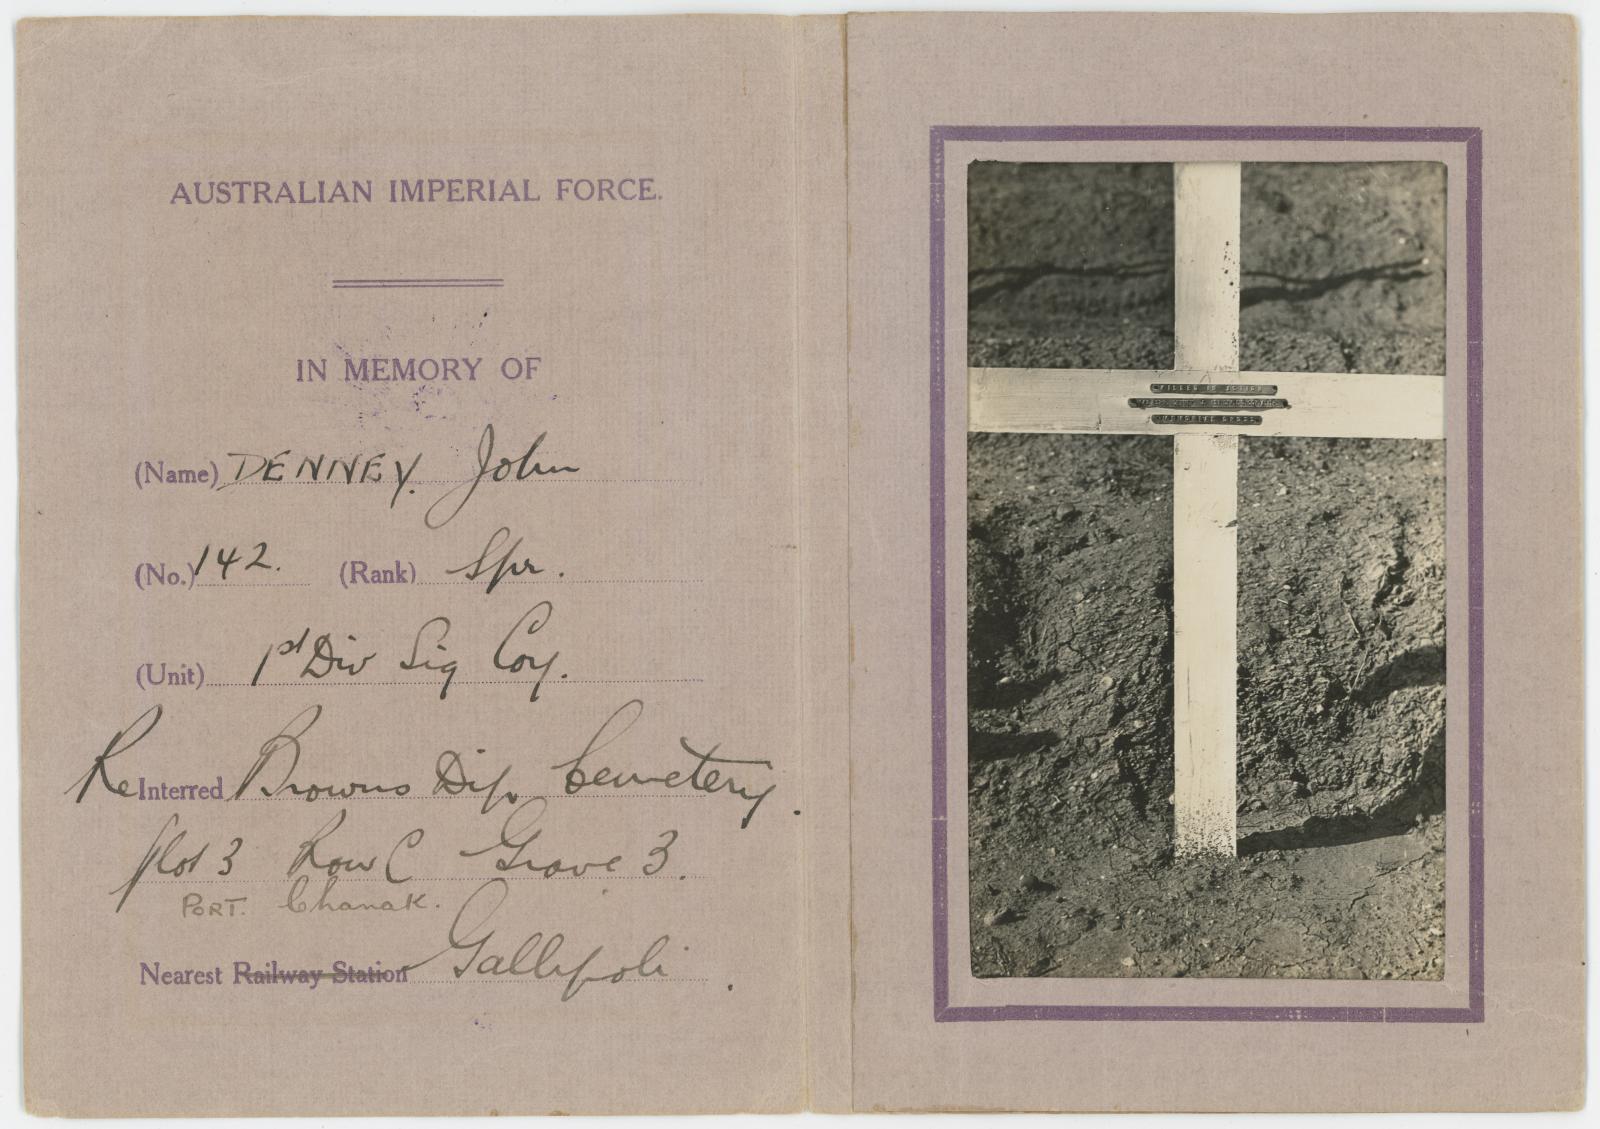 AUSTRALIAN IMPERIAL FORCE.
IN MEMORY OF
(Name) DENNEY. John
(No.) 142. (Rank) Spr.
(Unit) 1st Div Sig Coy.
Re Interred Browns Dip Cemetery.
Plot 3 Row C Grave 3.
PORT. Chanak.
Nearest Railway Station Gallipoli.
KILLED IN ACTION